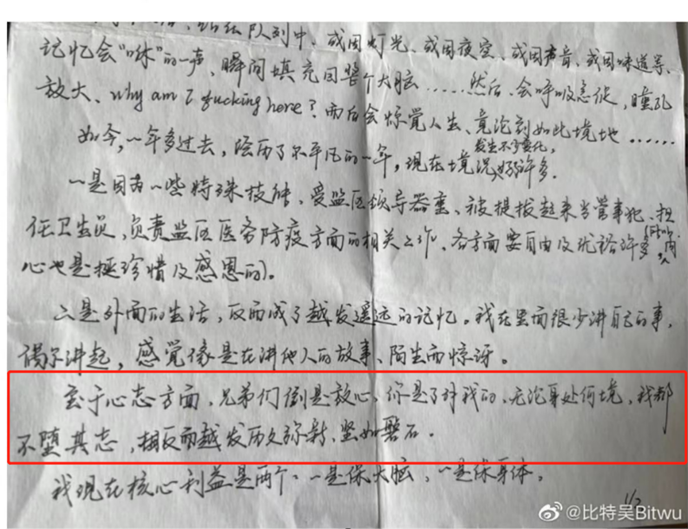 队列中、或因灯光、或因夜空、或因声音、或因味道等、
记忆会“咻”的一声、瞬间填充回整个大脑……然后,会呼吸急促,瞳孔
放大、why am I fucking here? 而后会惊觉人生、竟沦到如此境地……
如今,一年多过去,经历了不平凡的一年,发生不少变化,现在境况好许多.
一是因为一些特殊技能、受监区领导器重、被提拔起来当管事犯、担
任卫生员,负责监区医务防疫方面的相关工作、各方面要自由及优裕许多(
心也是挺珍惜及感恩的)。
二是外面的生活,反而成了越发遥远的记忆。我在里面很少讲自己的事,
偶尔讲起,感觉像是在讲他人的故事、陌生而惊讶。
至于心志方面,兄弟们倒是放心、你是了解我的,无论身处何境,我都
不堕其志,相反而越发历久弥新、坚如磐石.
我现在核心利益是两个、一是保大脑,一是保身体.
1/2
@比特吴Bitwu